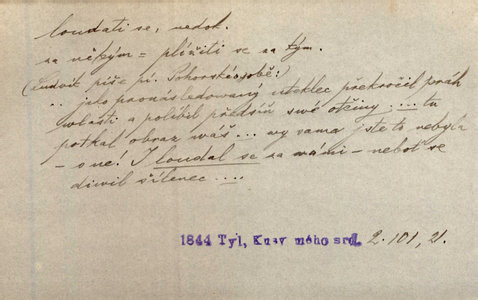 loudati se, nedok.
za někým = plížiti se za kým.
(Ludvík píše pí. Pohorské o sobě:)
.. jako pronásledovaný uteklec překročil práh
vlasti a políbil předsíň své otčiny .... tu
potkal obraz váš ... vy sama jste to nebyla
– o ne! I loudal se za vámi – neboť se
divil šílenec ....
1844 Tyl, Kusy mého srd. 2. 101, 21.